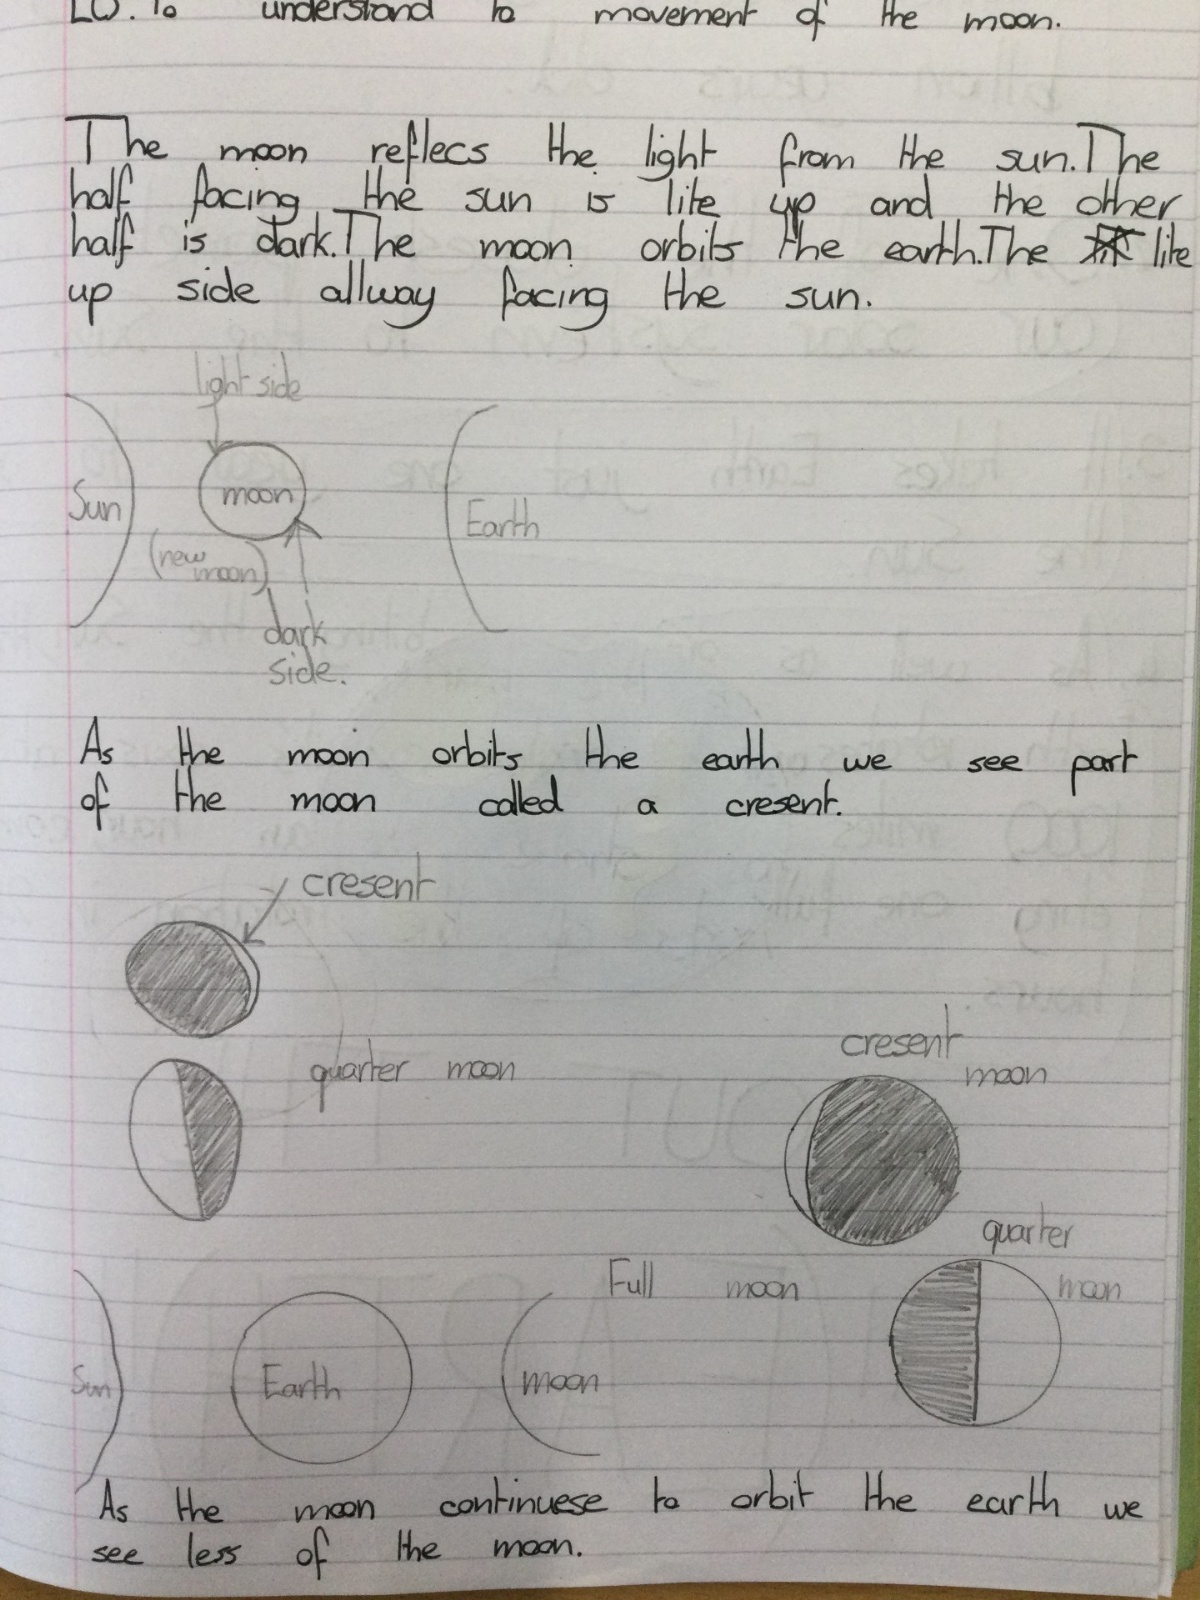 LO. To understand to movement of the moon.
The moon reflecs the light from the sun. The
half facing the sun is lite up and the other
half is dark. The moon orbits the earth. The lite
up side allway facing the sun.
light side
Sun
moon
Earth
(new
moon)
dark
side.
As the moon orbits the earth we see part
of the moon called a cresent.
cresent
quarter moon
cresent
moon
quarter
moon
Full moon
Sun
Earth
moon
As the moon continuese to orbit the earth we
see less of the moon.